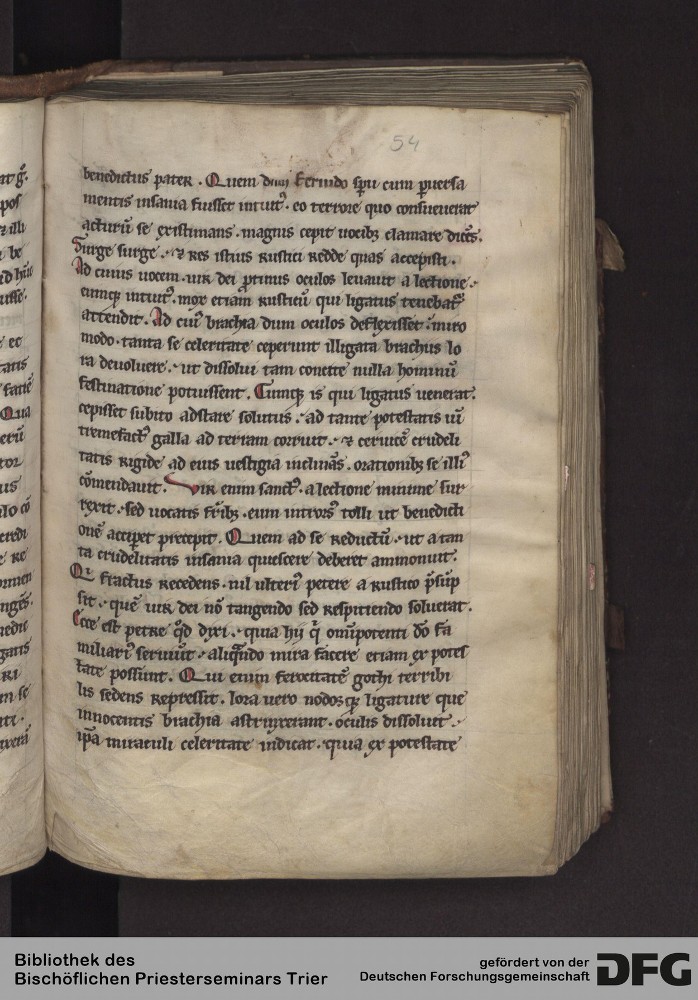 54
benedictus pater . Quem dum feruido spu cum puersa
mentis insania fuisset intuit᷒ . eo terrore quo consueuerat
acturū se existimans . magnis cepit uocibꝫ clamare dicēs .
Surge surge . ⁊ res istius rustici redde quas accepisti .
Ad cuius uocem . uir dei ptinus oculos leuauit a lectione .
eumqꝫ intuit᷒ . mox etiam rusticū qui ligatus tenebat᷒
attendit . Ad cui᷒ brachia dum oculos deflexisset . miro
modo . tanta se celeritate ceperunt illigata brachiis lo
ra deuoluere . ut dissolui tam concite nulla hominū
festinatione potuissent . Cumqꝫ is qui ligatus uenerat .
cepisset subito adstare solutus . ad tante potestatis uī
tremefact᷒ galla ad terram corruit . ⁊ ceruicē crudeli
tatis rigide ad eius uestigia inclinās . orationibꝫ se illi᷒
cōmendauit . Vir enim sanct᷒ . a lectione minime sur
rexit . sed uocatis fribꝫ . eum introrsˢ tolli ut benedicti
onē acciperet precepit . Quem ad se reductū . ut a tan
ta crudelitatis insania quiescere deberet ammonuit .
Qi fractus recedens . nil ulteri᷒ petere a rustico p̄sūp
sit . quē uir dei nō tangendo sed respitiendo soluerat .
Ecce est petre qd dixi . quia hij q̄ omīpotenti dō fa
miliari᷒ seruiūt . aliqn̄do mira facere etiam ex potes
tate possunt . Qui enim ferocitatē gothi terribi
lis sedens repressit . lora uero nodosqꝫ ligature que
innocentis brachia astrinxerant . oculis dissoluit .
ip̄a miraculi celeritate indicat . quia ex potestate
Bibliothek des
Bischöflichen Priesterseminars Trier
gefördert von der
Deutschen Forschungsgemeinschaft
DFG